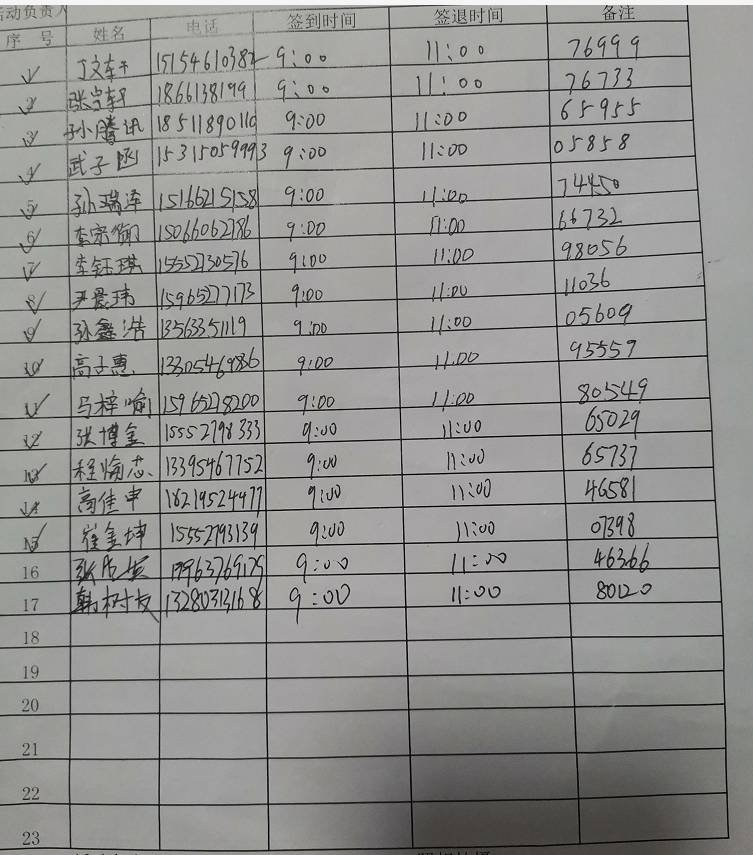 活动负责人
序 号 姓名 电话 签到时间 签退时间 备注
1 丁文轩 15154610382 9:00 11:00 76999
2 张宇轩 1866138199 9:00 11:00 76733
3 孙腾讯 18511890110 9:00 11:00 65955
4 武子函 15315059993 9:00 11:00 05858
5 孙瑞泽 15166215158 9:00 11:00 74450
6 李宗衡 15066062786 9:00 11:00 66732
7 李钰琪 15552730576 9:00 11:00 98056
8 尹晨玮 15965277173 9:00 11:00 11036
9 孙鑫浩 13563351119 9:00 11:00 05609
10 高子惠 13305469886 9:00 11:00 95559
11 马梓喻 15965278200 9:00 11:00 80549
12 张博金 15552798333 9:00 11:00 65029
13 程愉芯 13395467752 9:00 11:00 65737
14 高佳申 18219524477 9:00 11:00 46581
15 崔金坤 15552793139 9:00 11:00 07398
16 9:00 11:00 46366
17 韩树友 13280313168 9:00 11:00 80120
18
19
20
21
22
23